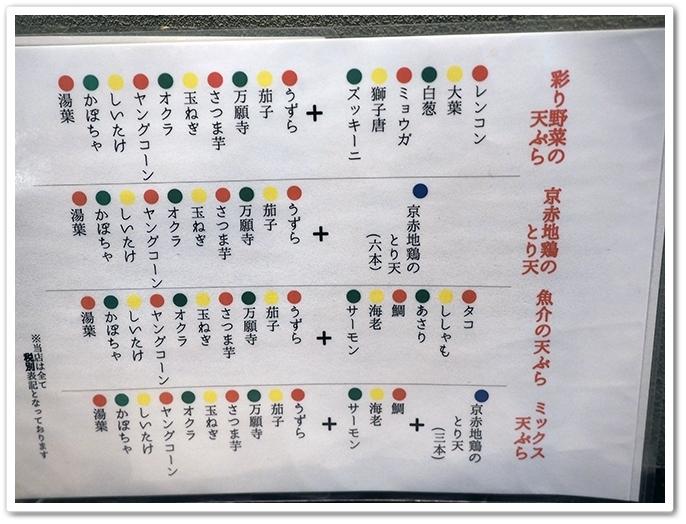 彩り野菜の
天ぷら
レンコン
大葉
白葱
ミョウガ
獅子唐
ズッキーニ
+
うずら
茄子
万願寺
さつま芋
玉ねぎ
オクラ
ヤングコーン
しいたけ
かぼちゃ
湯葉
京赤地鶏の
とり天
京赤地鶏の
とり天
(六本)
+
うずら
茄子
万願寺
さつま芋
玉ねぎ
オクラ
ヤングコーン
しいたけ
かぼちゃ
湯葉
魚介の天ぷら
タコ
ししゃも
あさり
鯛
海老
サーモン
+
うずら
茄子
万願寺
さつま芋
玉ねぎ
オクラ
ヤングコーン
しいたけ
かぼちゃ
湯葉
ミックス
天ぷら
京赤地鶏の
とり天
(三本)
+
鯛
海老
サーモン
+
うずら
茄子
万願寺
さつま芋
玉ねぎ
オクラ
ヤングコーン
しいたけ
かぼちゃ
湯葉
※当店は全て
税別表記となっております